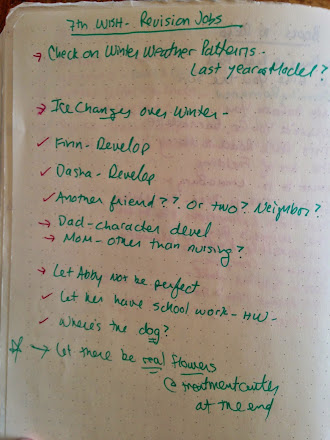 7th WISH - Revision Jobs
→ Check on Winter Weather Patterns.
Last year as Model?
→ Ice Changes over Winter -
✓ Finn - Develop
✓ Dasha - Develop
✓ Another friend?? Or two? Neighbor?
→ Dad - character devel
→ Mom - other than nursing?
→ Let Abby not be perfect
✓ Let her have school work - HW -
✓ Where's the dog?
☆ → Let there be real flowers
@ treatment center
at the end